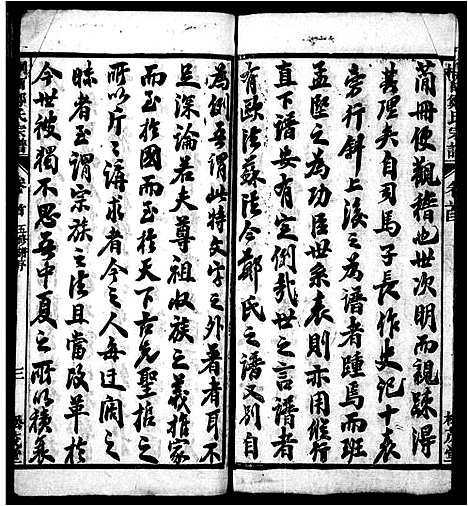 簡冊便觀稽也世次明而親疎得
其理矣自司馬子長作史記十表
旁行斜上後之為譜者踵焉而班
孟堅之為功臣世系表則亦用縱行
直下譜安有定例哉世之言譜者
有歐法蘇法今鄭氏之譜又別自
為例吾謂此特文字之外著者耳不
足深論若夫尊祖收族之義推家
而至於國而至於天下古先聖哲之
所以斤之講求者今之人每迂闊之
昧者至謂宗族之法且當改革於
今世彼獨不思吾中夏之所以積炎
鄭氏宗譜
卷首
三